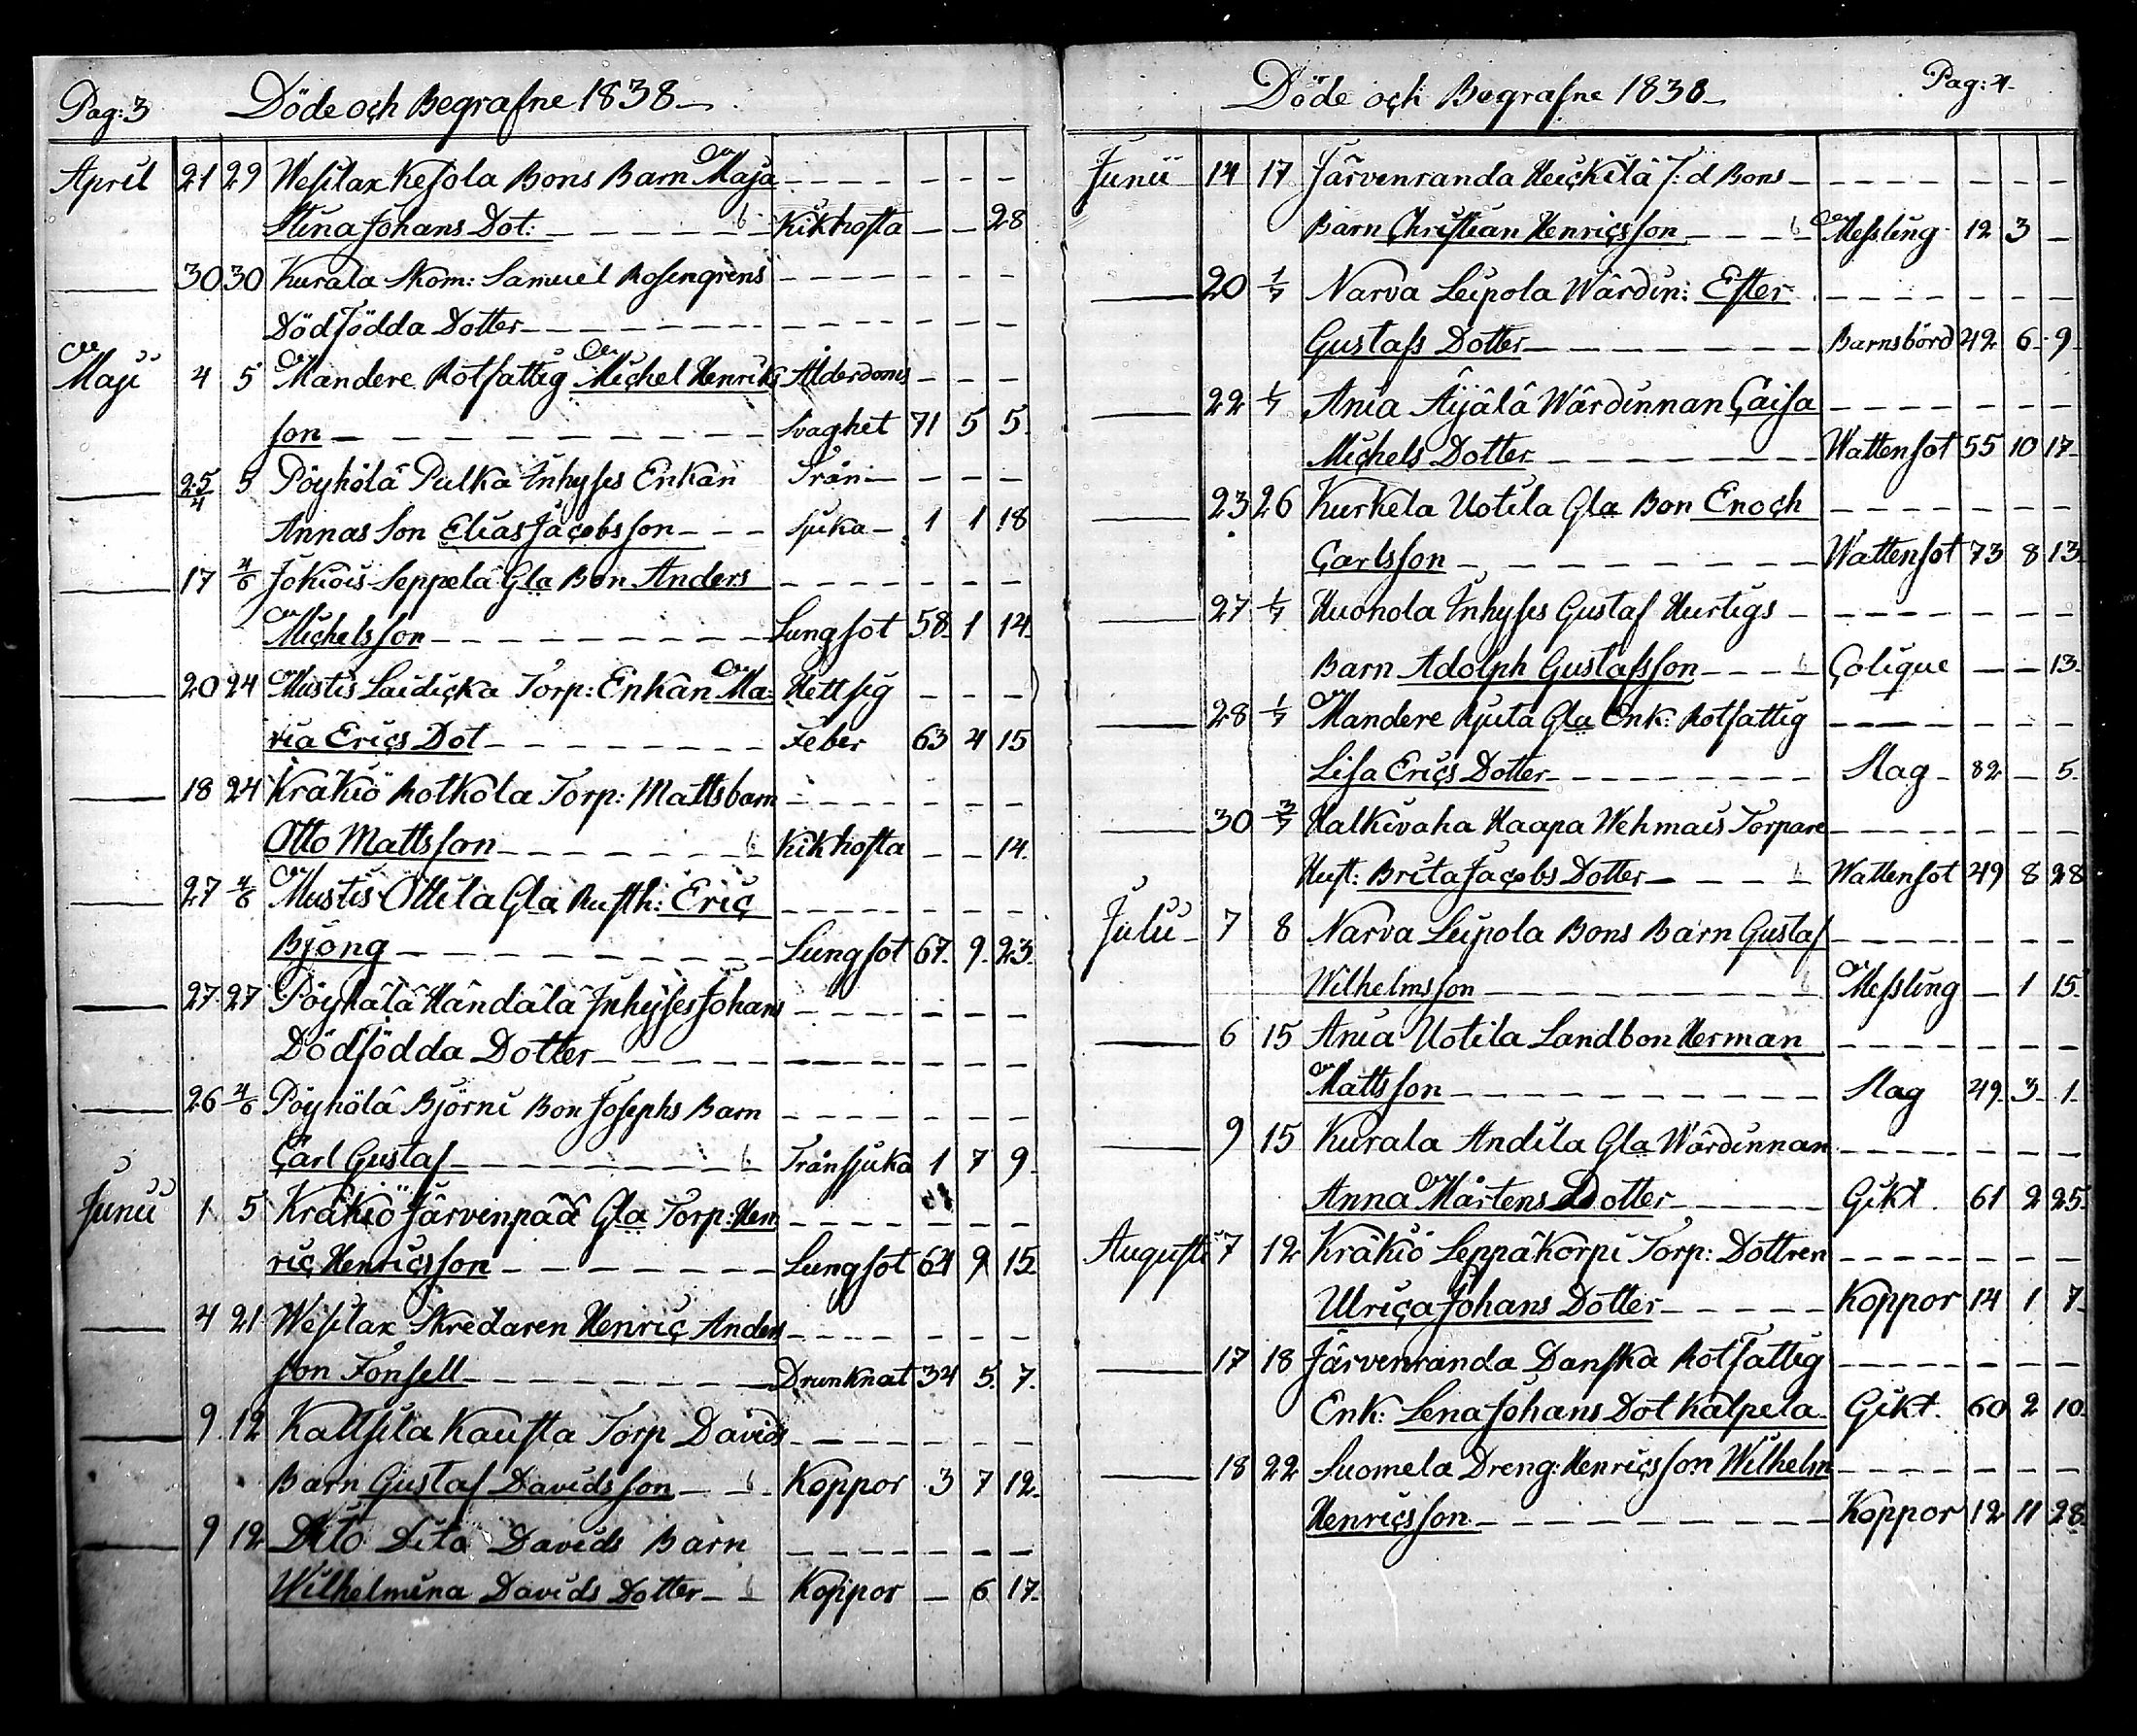 Pag: 3 Döde och Begrafne 1838
April 21 29 Wesilax Kesola Bons Barn Maja
Stina Johans Dot: Kikhosta 28
30 30 Kurala Skom: Samuel Rosengrens
Dödfödda Dotter
Maji 4 5 Mandere Rotfattig Michel Henriks Ålderdoms
son Svaghet 71 5 5
25/4 5 Pöyhölä Pulka Inhyses Enkan Trån
Annas Son Elias Jacobsson sjuka 1 1 18
17 4/6 Jokiois Seppelä Gla Bon Anders
Michelsson Lungsot 58 1 14
20 24 Mustis Laidicka Torp: Enkan Ma: Hettsig
ria Erics Dot Feber 63 4 15
18 24 Kräkiö Rotkola Torp: Matts barn
Otto Mattsson Kikhosta 14
27 4/6 Mustis Ottila Gla Rusth: Eric
Björig Lungsot 67 9 23
27 27 Pöyhälä Händälä Inhyses Johans
Dödfödda Dotter
26 4/6 Pöyhölä Björni Bon Josephs Barn
Carl Gustaf Trånsjuka 1 7 9
Junii 1 5 Kräkiö Järvenpää Gla Torp: Hen
ric Henricsson Lungsot 64 9 15
4 21 Wesilax Skredaren Henric Anders
son Fonsell Drunknat 34 5 7
9 12 Kaltsila Kausta Torp Davids
Barn Gustaf Davidsson Koppor 3 7 12
9 12 Dito Dito Davids Barn
Wilhelmina Davids Dotter Koppor 6 17
Döde och Begrafne 1838 Pag: 4
Junii 14 17 Järvenranda Heickilä J: d Bons
Barn Christian Henricsson Messling 12 3
20 1/7 Narva Leipola Wärdin: Ester
Gustafs Dotter Barnsbörd 42 6 9
22 1/7 Ania Äijälä Wärdinnan Caisa
Michels Dotter Wattensot 55 10 17
23 26 Kurkela Uotila Gla Bon Enoch
Carlsson Wattensot 73 8 13
27 1/7 Huonola Inhyses Gustaf Hurtigs
Barn Adolph Gustafsson Colique 13
28 1/7 Mandere Rjuta Gla Enk: Rotfattig
Lisa Erics Dotter Slag 82 5
30 3/7 Halkivaha Haapa Wehmais Torpare
Hust: Brita Jacobs Dotter Wattensot 49 8 28
Julii 7 8 Narva Leipola Bons Barn Gustaf
Wilhelmsson Messling 1 15
6 15 Ania Uotila Landbon Herman
Mattsson Slag 49 3 1
9 15 Kurala Andila Gla Wärdinnan
Anna Mårtens Dotter Gikt 61 2 25
Augusti 7 12 Kräkiö Leppäkorpi Torp: Dottren
Ulrica Johans Dotter Koppor 14 1 7
17 18 Järvenranda Danska Rotfattig
Enk: Lena Johans Dot Kalpela Gikt 60 2 10
18 22 Suomela Dreng: Henricsson Wilhelm
Henricsson Koppor 12 11 28